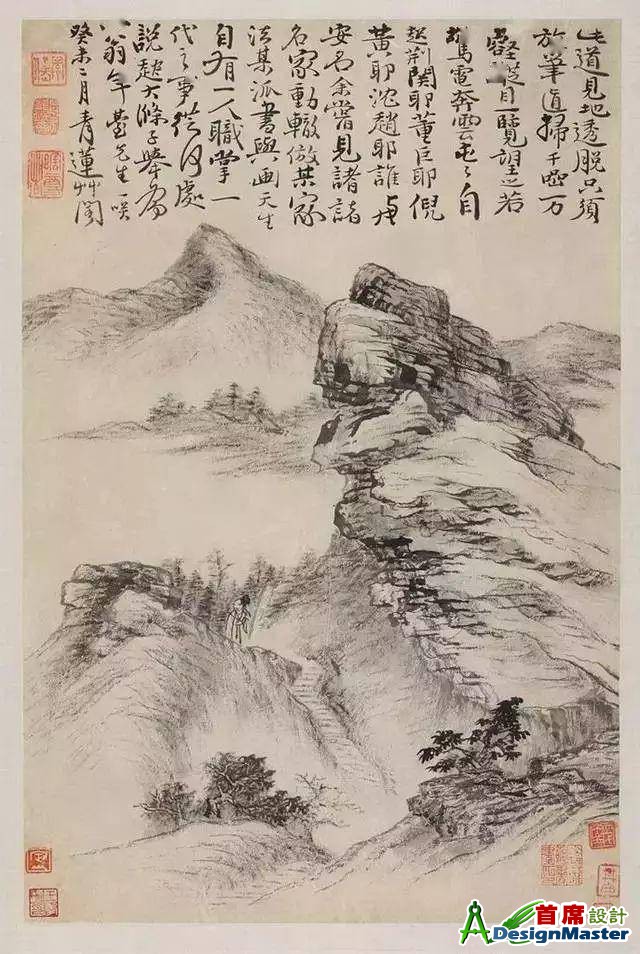 此道見地透脫只須
放筆直掃千巖万
壑縱目一覽望之若
驚電奔雲屯々自
起荊関耶董巨耶倪
黃耶沈趙耶誰与
安名余嘗見諸諸
名家動轍倣某家
法某派書與画天生
自有一人職掌一
代之事從何處
說起大滌子舉為
八翁年臺先生一咲
癸未二月青蓮艸閣
首席設計
ADesignMaster